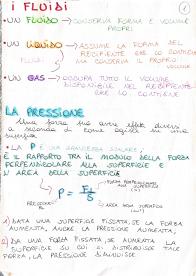 I FLUIDI
1
UN SOLIDO → CONSERVA FORMA E VOLUME
PROPRI
UN LIQUIDO → ASSUME LA FORMA DEL
RECIPIENTE CHE LO CONTIENE
FLUIDI MA CONSERVA IL PROPRIO
VOLUME
UN GAS → OCCUPA TUTTO IL VOLUME
DISPONIBILE NEL RECIPIENTE
CHE LO CONTIENE
LA PRESSIONE
Una forza può avere effetti diversi
a seconda di come agisce su una
superficie
LA P È UNA GRANDEZZA SCALARE;
È IL RAPPORTO TRA IL MODULO DELLA FORZA
PERPENDICOLARE ALLA SUPERFICIE E
L'AREA DELLA SUPERFICIE
FORZA PERPENDICOLARE
ALLA SUPERFICIE
P = F⊥/S
PRESSIONE
AREA DELLA SUPERFICIE
1) DATA UNA SUPERFICIE FISSATA, SE LA FORZA
AUMENTA, ANCHE LA PRESSIONE AUMENTA;
2) DATA UNA FORZA FISSATA, SE AUMENTA LA
SUPERFICIE SU CUI SI DISTRIBUISCE TALE
FORZA, LA PRESSIONE DIMINUISCE